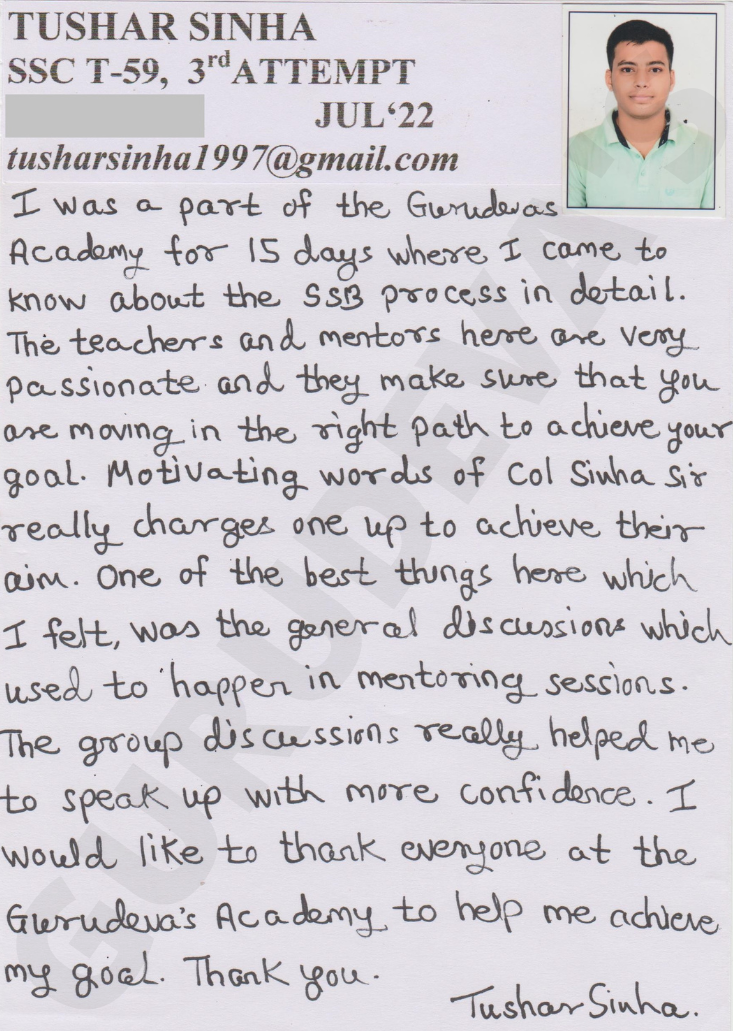 TUSHAR SINHA
SSC T-59, 3rd ATTEMPT
JUL‘22
tusharsinha1997@gmail.com
I was a part of the Gurudevas
Academy for 15 days where I came to
know about the SSB process in detail.
The teachers and mentors here are very
passionate and they make sure that you
are moving in the right path to achieve your
goal. Motivating words of Col Sinha Sir
really charges one up to achieve their
aim. One of the best things here which
I felt, was the general discussions which
used to happen in mentoring sessions.
The group discussions really helped me
to speak up with more confidence. I
would like to thank everyone at the
Gurudeva's Academy to help me achieve
my goal. Thank you.
Tushar Sinha.
GURUDEVAS